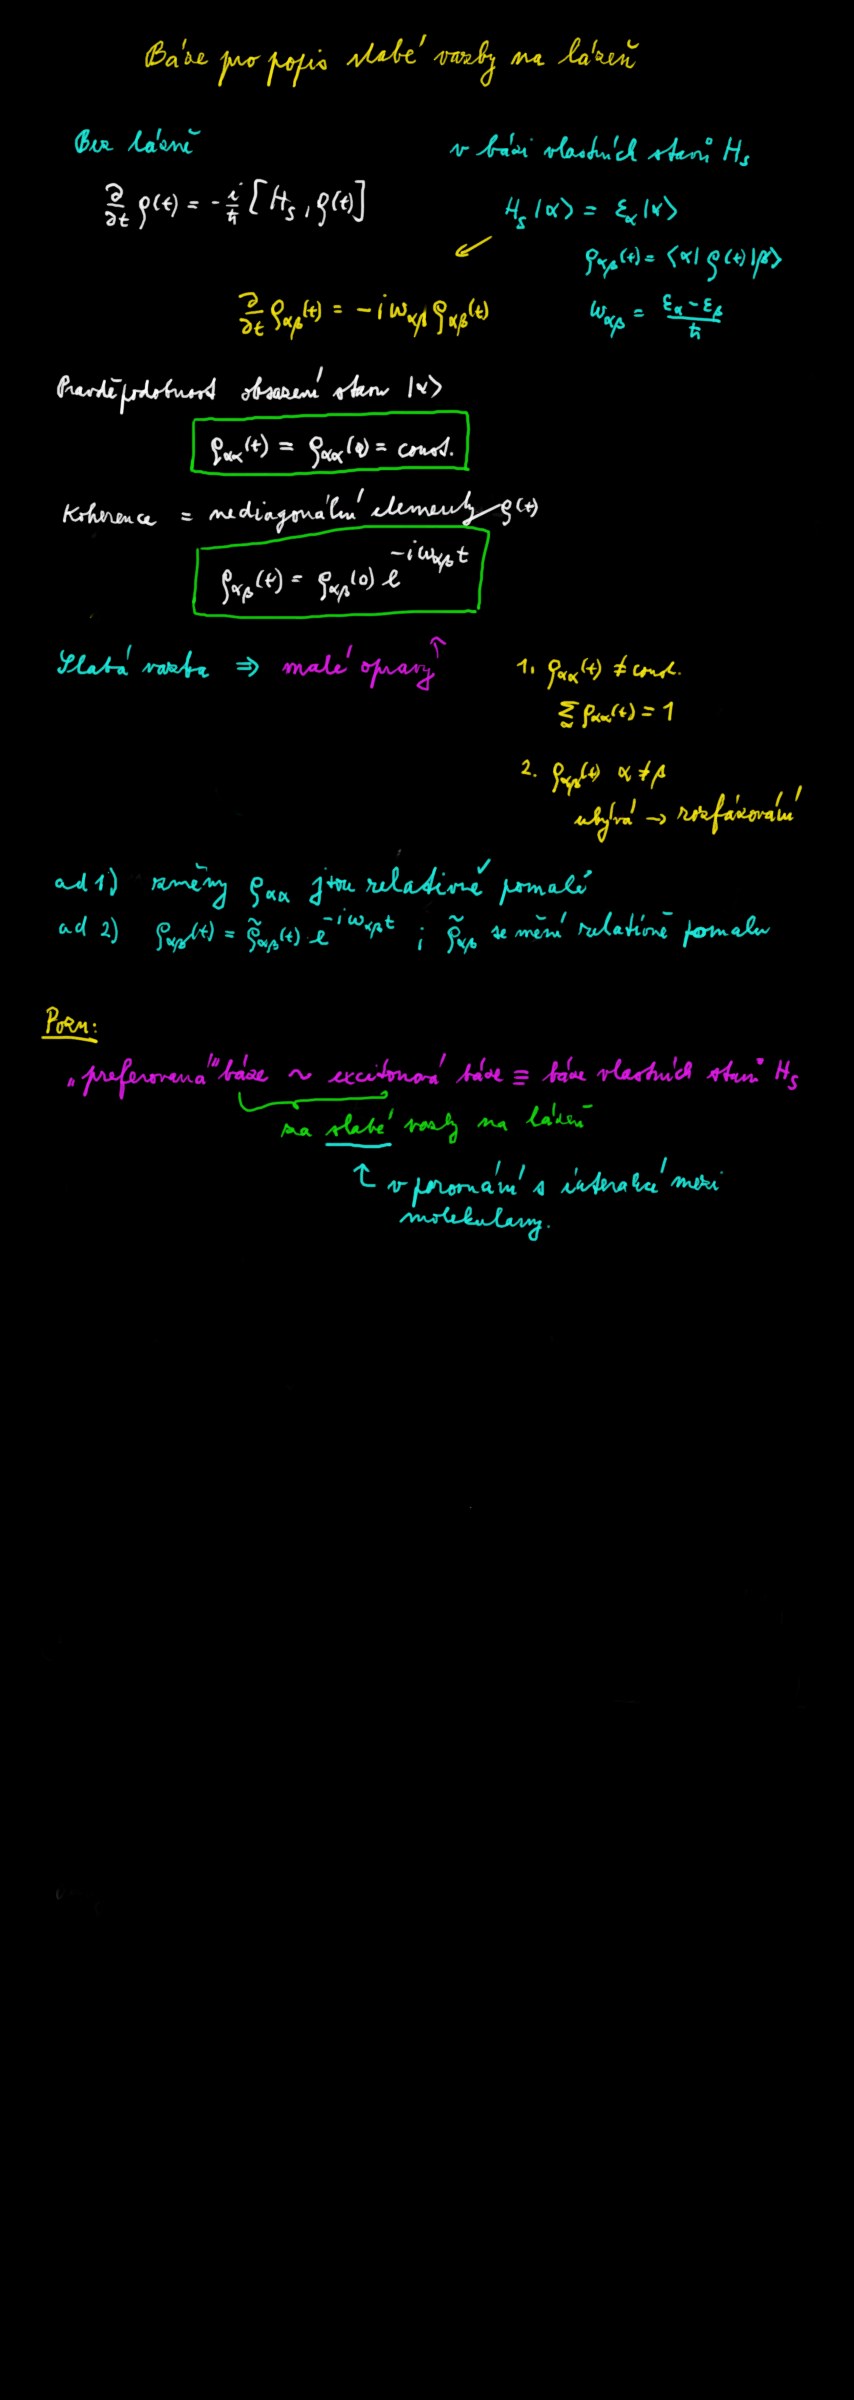 Báze pro popis slabé vazby na lázeň
Bez lázně
∂/∂t ρ(t) = -i/ħ [H_S, ρ(t)]
v bázi vlastních stavů H_S
H_S |α⟩ = ε_α |α⟩
ρ_αβ(t) = ⟨α| ρ(t) |β⟩
ω_αβ = (ε_α - ε_β)/ħ
∂/∂t ρ_αβ(t) = -i ω_αβ ρ_αβ(t)
Pravděpodobnost obsazení stavu |α⟩
ρ_αα(t) = ρ_αα(0) = const.
Koherence = nediagonální elementy ρ(t)
ρ_αβ(t) = ρ_αβ(0) e^{-iω_αβ t}
Slabá vazba ⇒ malé opravy ↑
1. ρ_αα(t) ≠ const.
∑_α ρ_αα(t) = 1
2. ρ_αβ(t) α ≠ β
ubývá → rozfázování
ad 1) změny ρ_αα jsou relativně pomalé
ad 2) ρ_αβ(t) = ρ̃_αβ(t) · e^{-iω_αβ t} ; ρ̃_αβ se mění relativně pomalu
Pozn:
„preferovaná" báze ~ excitonová báze ≡ báze vlastních stavů H_S
za slabé vazby na lázeň
↑ v porovnání s interakcí mezi
molekulamy.